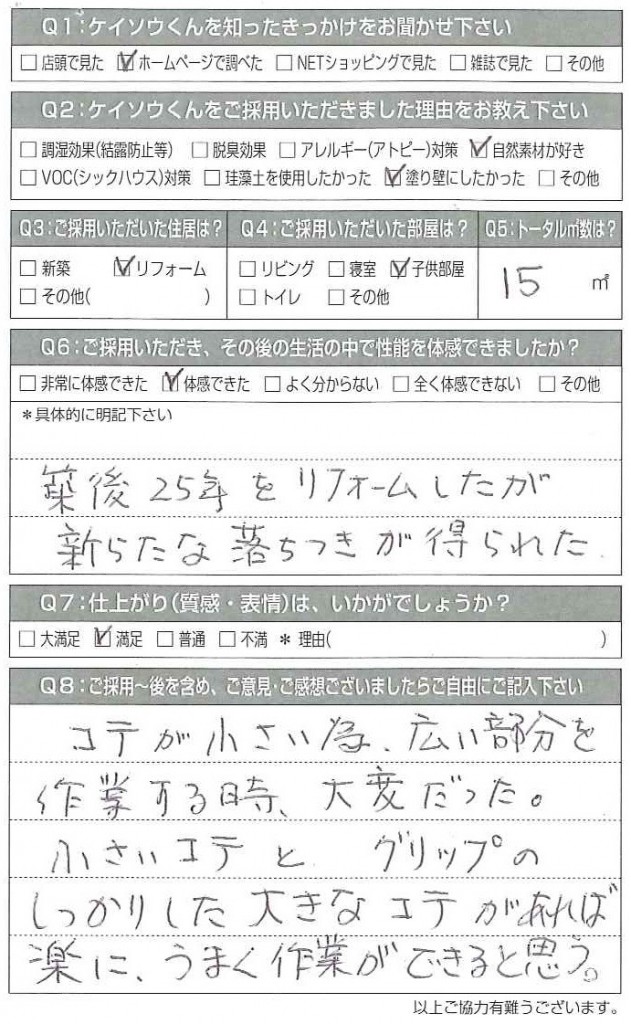 Q1:ケイソウくんを知ったきっかけをお聞かせ下さい
□店頭で見た ☑ホームページで調べた □NETショッピングで見た □雑誌で見た □その他
Q2:ケイソウくんをご採用いただきました理由をお教え下さい
□調湿効果(結露防止等) □脱臭効果 □アレルギー(アトピー)対策 ☑自然素材が好き
□VOC(シックハウス)対策 □珪藻土を使用したかった ☑塗り壁にしたかった □その他
Q3:ご採用いただいた住居は?
□新築 ☑リフォーム
□その他( )
Q4:ご採用いただいた部屋は?
□リビング □寝室 ☑子供部屋
□トイレ □その他
Q5:トータル㎡数は?
15 ㎡
Q6:ご採用いただき、その後の生活の中で性能を体感できましたか?
□非常に体感できた ☑体感できた □よく分からない □全く体感できない □その他
*具体的に明記下さい
築後25年をリフォームしたが
新らたな落ちつきが得られた
Q7:仕上がり(質感・表情)は、いかがでしょうか?
□大満足 ☑満足 □普通 □不満 *理由( )
Q8:ご採用~後を含め、ご意見・ご感想ございましたらご自由にご記入下さい
コテが小さい為、広い部分を
作業する時、大変だった。
小さいコテと グリップの
しっかりした大きなコテがあれば
楽に、うまく作業ができると思う。
以上ご協力有難うございます。